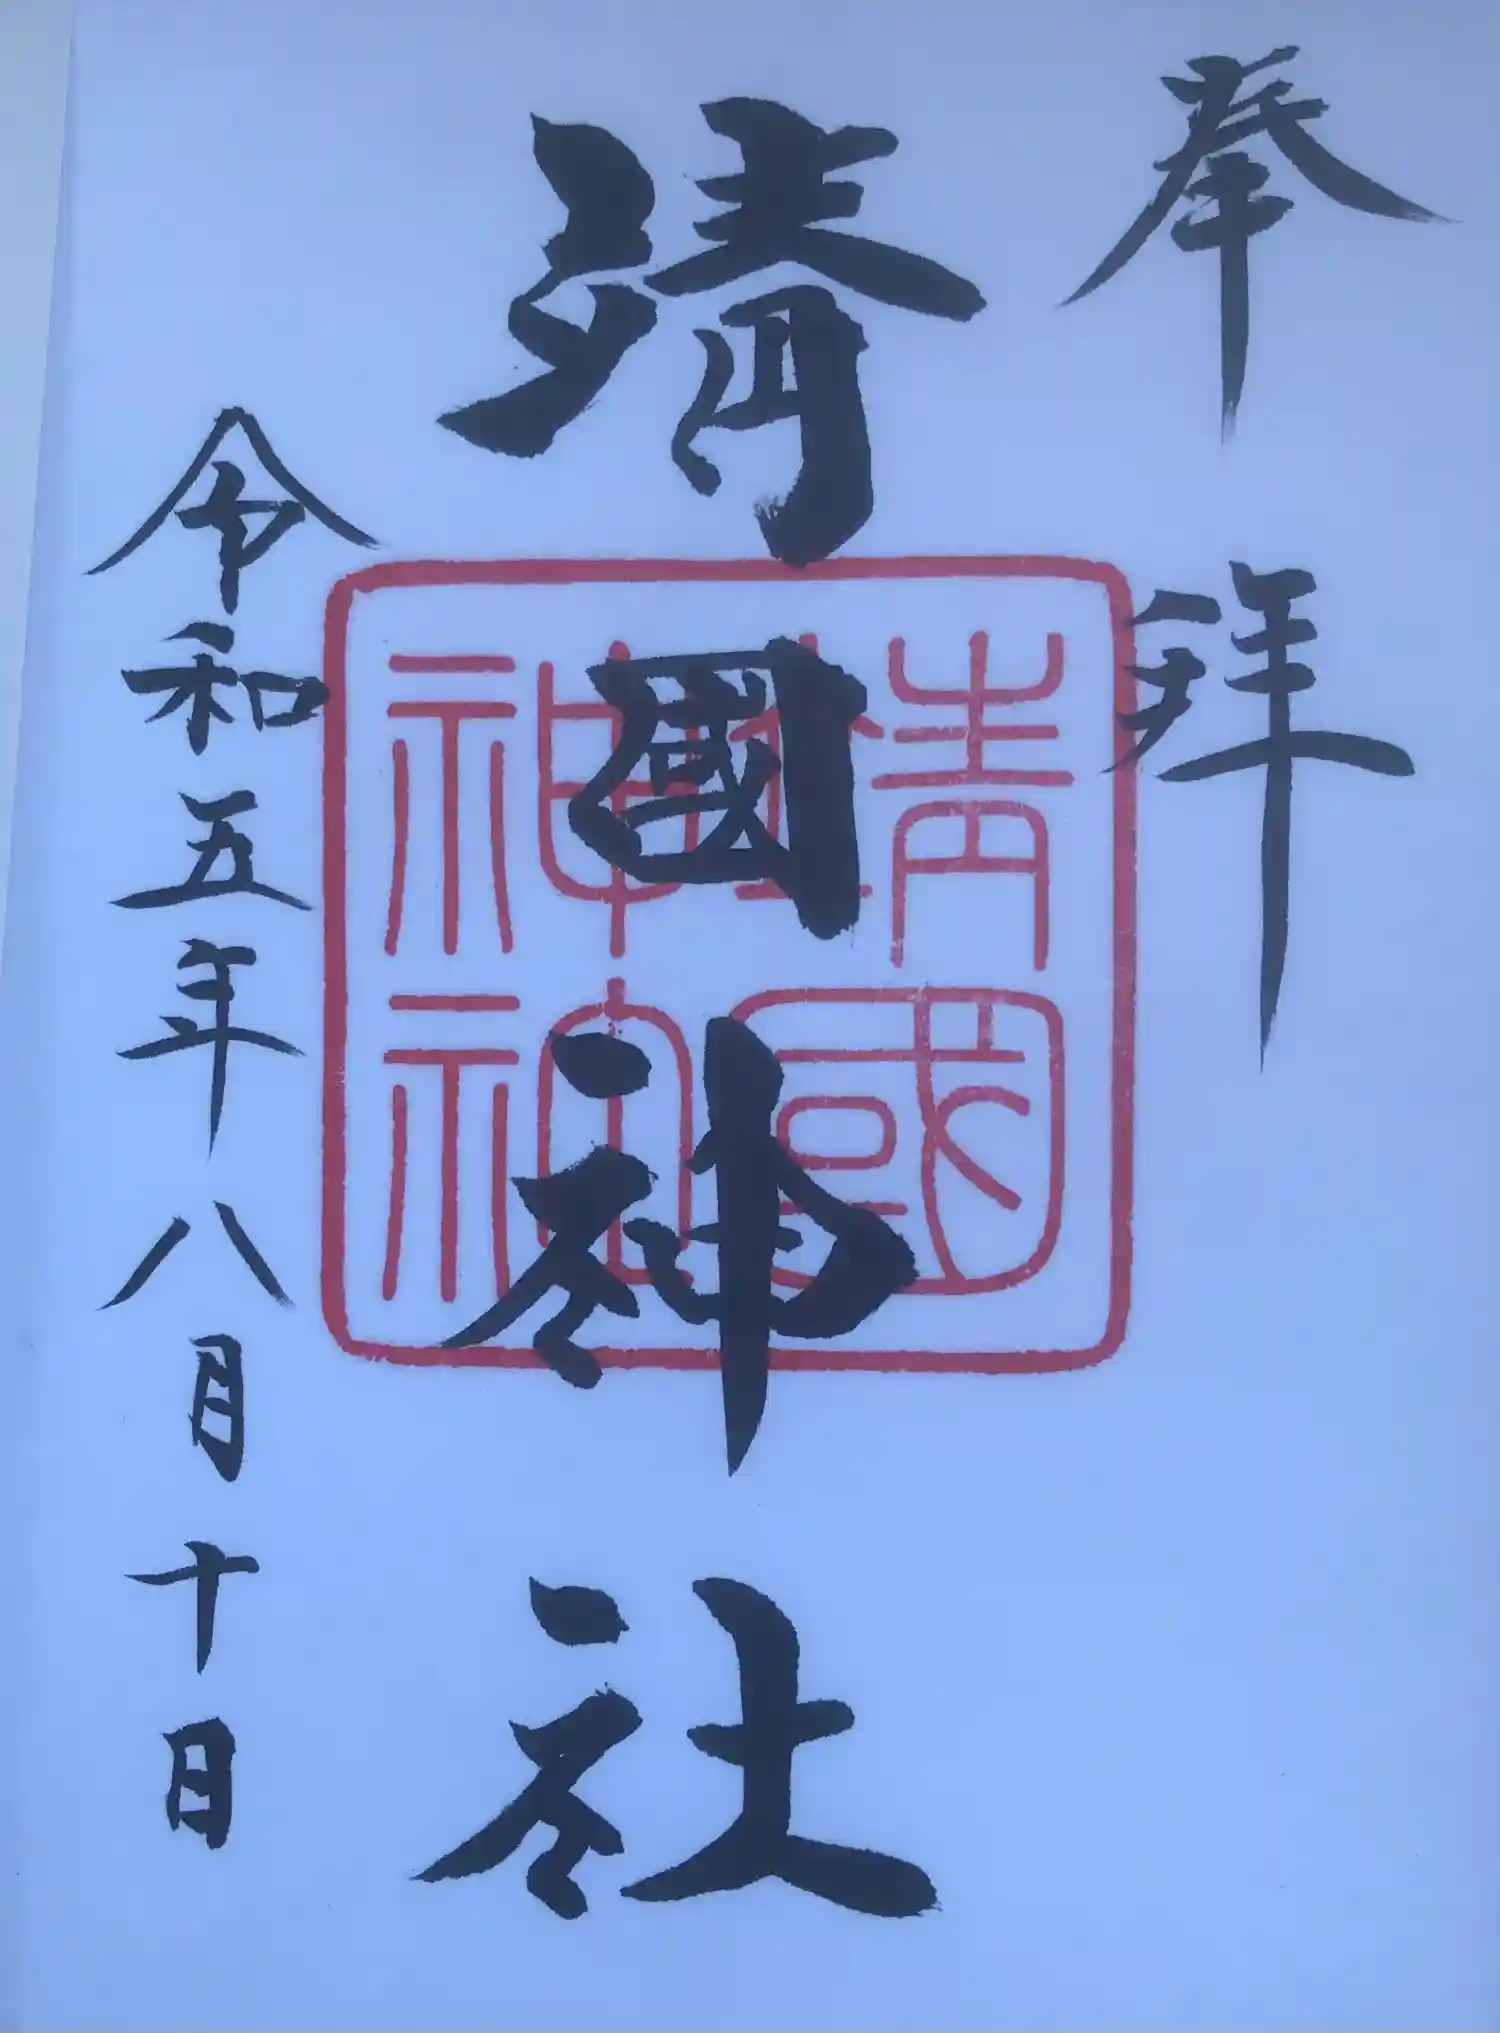 奉拝
靖國神社
靖國
神社
令和五年八月十日